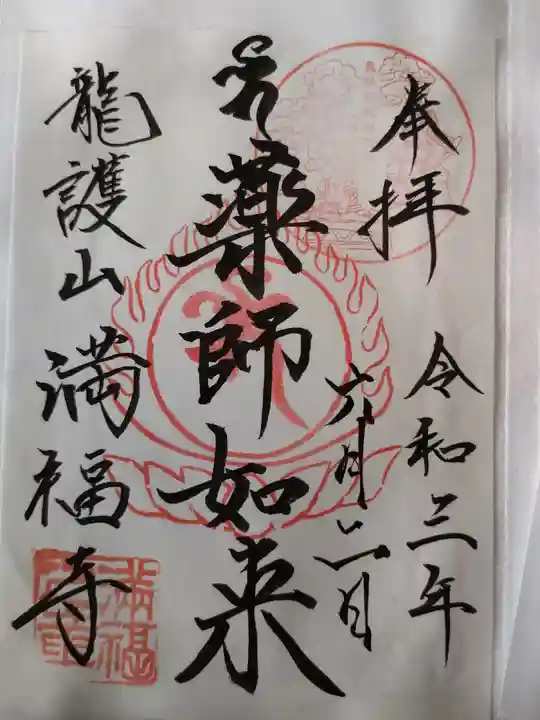 奉拝
令和三年
六月二日
薬師如来
龍護山満福寺